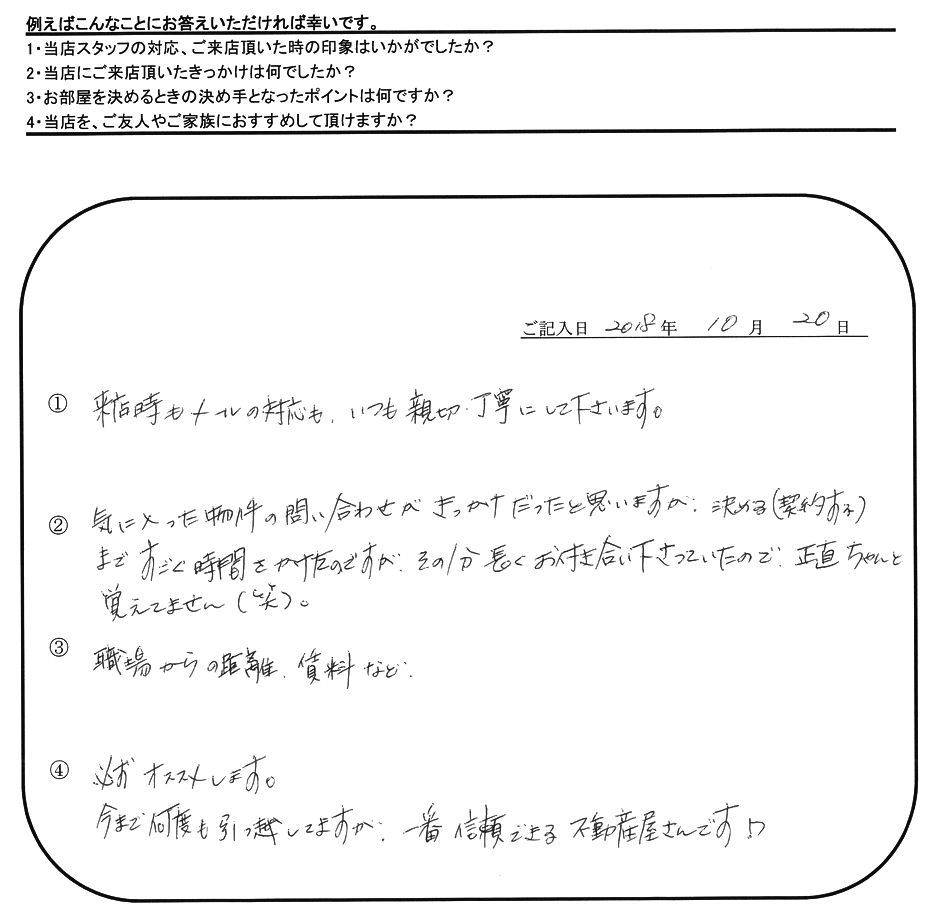 例えばこんなことにお答えいただければ幸いです。
1・当店スタッフの対応、ご来店頂いた時の印象はいかがでしたか？
2・当店にご来店頂いたきっかけは何でしたか？
3・お部屋を決めるときの決め手となったポイントは何ですか？
4・当店を、ご友人やご家族におすすめして頂けますか？
ご記入日 2018年 10月 20日
① 来店時もメールの対応も、いつも親切・丁寧にして下さいます。
② 気に入った物件の問い合わせがきっかけだったと思いますが、決める(契約する)
まですごく時間をかけたのですが、その分長くお付き合い下さっていたので、正直ちゃんと
覚えてません(笑)。
③ 職場からの距離、賃料など、
④ 必ずオススメします。
今まで何度も引っ越してますが、一番信頼できる不動産屋さんです♪